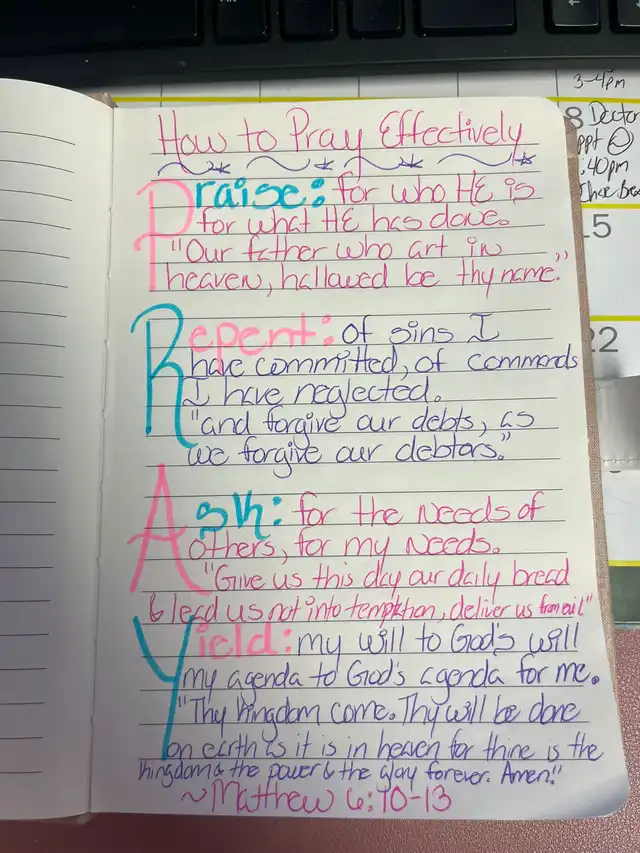 3-4pm
8 Doctor
ppt @
:40pm
15
22
How to Pray Effectively
Praise: for who HE is
for what HE has done.
"Our father who art in
heaven, hallowed be thy name."
Repent: of sins I
have committed, of commands
I have neglected.
"and forgive our debts, as
we forgive our debtors."
Ask: for the needs of
others, for my needs.
"Give us this day our daily bread
& lead us not into temptation, deliver us from evil"
Yield: my will to God's will
my agenda to God's agenda for me.
"Thy kingdom come. Thy will be done
on earth as it is in heaven for thine is the
kingdom & the power & the glory forever. Amen!"
~Matthew 6:10-13